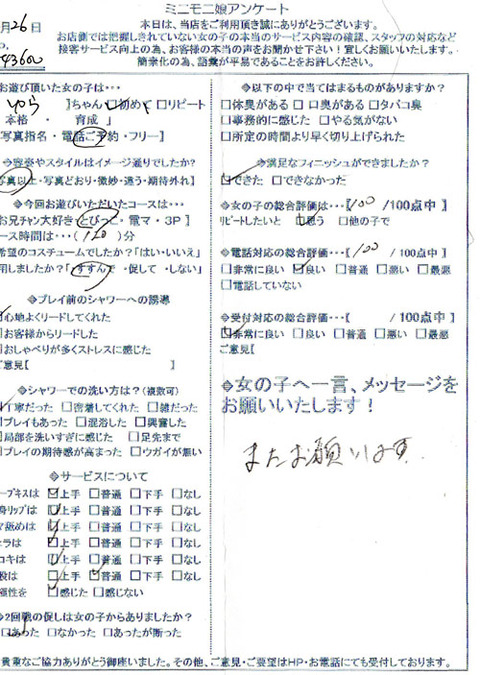 ミニモニ娘アンケート
本日は、当店をご利用頂き誠にありがとうございます。
お店側では把握しきれていない女の子の本当のサービス内容の確認、スタッフの対応など
接客サービス向上の為、お客様の本当の声をお聞かせ下さい！宜しくお願いいたします。
簡素化の為、語彙が平易であることをお許しください。
月26日
お遊び頂いた女の子は…
ゆら 】ちゃん □初めて □リピート
本格・ 育成 」
写真指名・電話ご予約・フリー】
◆容姿やスタイルはイメージ通りでしたか？
写真以上・写真どおり・微妙・違う・期待外れ】
◆今回お遊びいただいたコースは…
お兄チャン大好き・とびっこ・電マ・3P】
ース時間は…(120)分
希望のコスチュームでしたか？「はい・いいえ」
用しましたか？「すすんで・促して・しない」
◆プレイ前のシャワーへの誘導
心地よくリードしてくれた
□お客様からリードした
□おしゃべりが多くストレスに感じた
ご意見【 】
◆シャワーでの洗い方は？(複数可)
丁寧だった □密着してくれた □雑だった
プレイもあった □混浴した □興奮した
局部を洗いすぎに感じた □足先まで
プレイの期待感が高まった □ウガイが無い
◆サービスについて
ープキスは □上手 □普通 □下手 □なし
身リップは □上手 □普通 □下手 □なし
マ舐めは □上手 □普通 □下手 □なし
ェラは □上手 □普通 □下手 □なし
コキは □上手 □普通 □下手 □なし
股は □上手 □普通 □下手 □なし
個性を □感じた □感じない
◆2回戦の促しは女の子からありましたか？
□あった □なかった □あったが断った
◆以下の中で当てはまるものがありますか？
□体臭がある □口臭がある □タバコ臭
□事務的に感じた □やる気がない
□所定の時間より早く切り上げられた
◆満足なフィニッシュができましたか？
□できた □できなかった
◆女の子の総合評価は…【100 /100点中】
リピートしたいと □思う □他の子で
◆電話対応の総合評価…【100 /100点中】
□非常に良い □良い □普通 □悪い □最悪
□電話していない
◆受付対応の総合評価…【 /100点中】
□非常に良い □良い □普通 □悪い □最悪
ご意見【
◆女の子へ一言、メッセージを
お願いいたします！
またお願いします
貴重なご協力ありがとう御座いました。その他、ご意見・ご要望はHP・お電話にても受付しております。